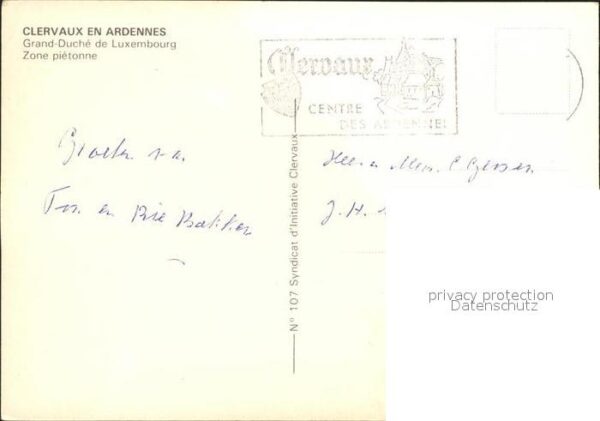 CLERVAUX EN ARDENNES
Grand-Duché de Luxembourg
Zone piétonne
Clervaux
CENTRE
DES ARDENNES
Groeten v.a.
Ton en Rie
Heer en Mevr.
J. H.
N° 107 Syndicat d'Initiative Clervaux
privacy protection
Datenschutz